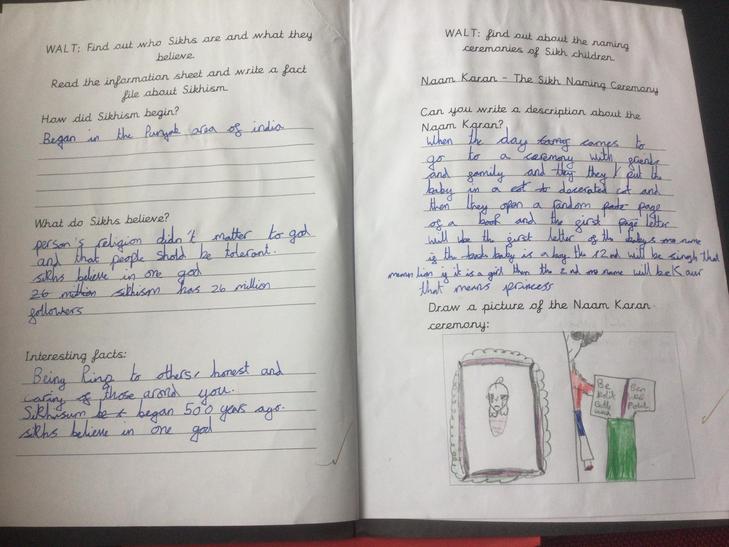 WALT: Find out who Sikhs are and what they
believe.
Read the information sheet and write a fact
file about Sikhism
How did Sikhism begin?
Began in the Punjab area of india
What do Sikhs believe?
person's religion didn't matter to god
and that people shold be tolerant.
sikhs believe in one god
26 million sikhism has 26 million
followers
Interesting facts:
Being King to others, honest and
caring of those arond you.
Sikhisum be began 500 years ago.
sikhs believe in one god
WALT: find out about the naming
ceremonies of Sikh children.
Naam Karan - The Sikh Naming Ceremony
Can you write a description about the
Naam Karan?
When the day comes to
go to a ceremony with friends
and family and they they put the
baby in a decorated cot and
then they open a random page
of a book and the first page letter
will be the first letter of the baby's name
is the baby is a boy the 2nd will be singh that
mean lion if it is a girl then the 2nd name will be Kaur
that means princess
Draw a picture of the Naam Karan
ceremony:
Be
Polit